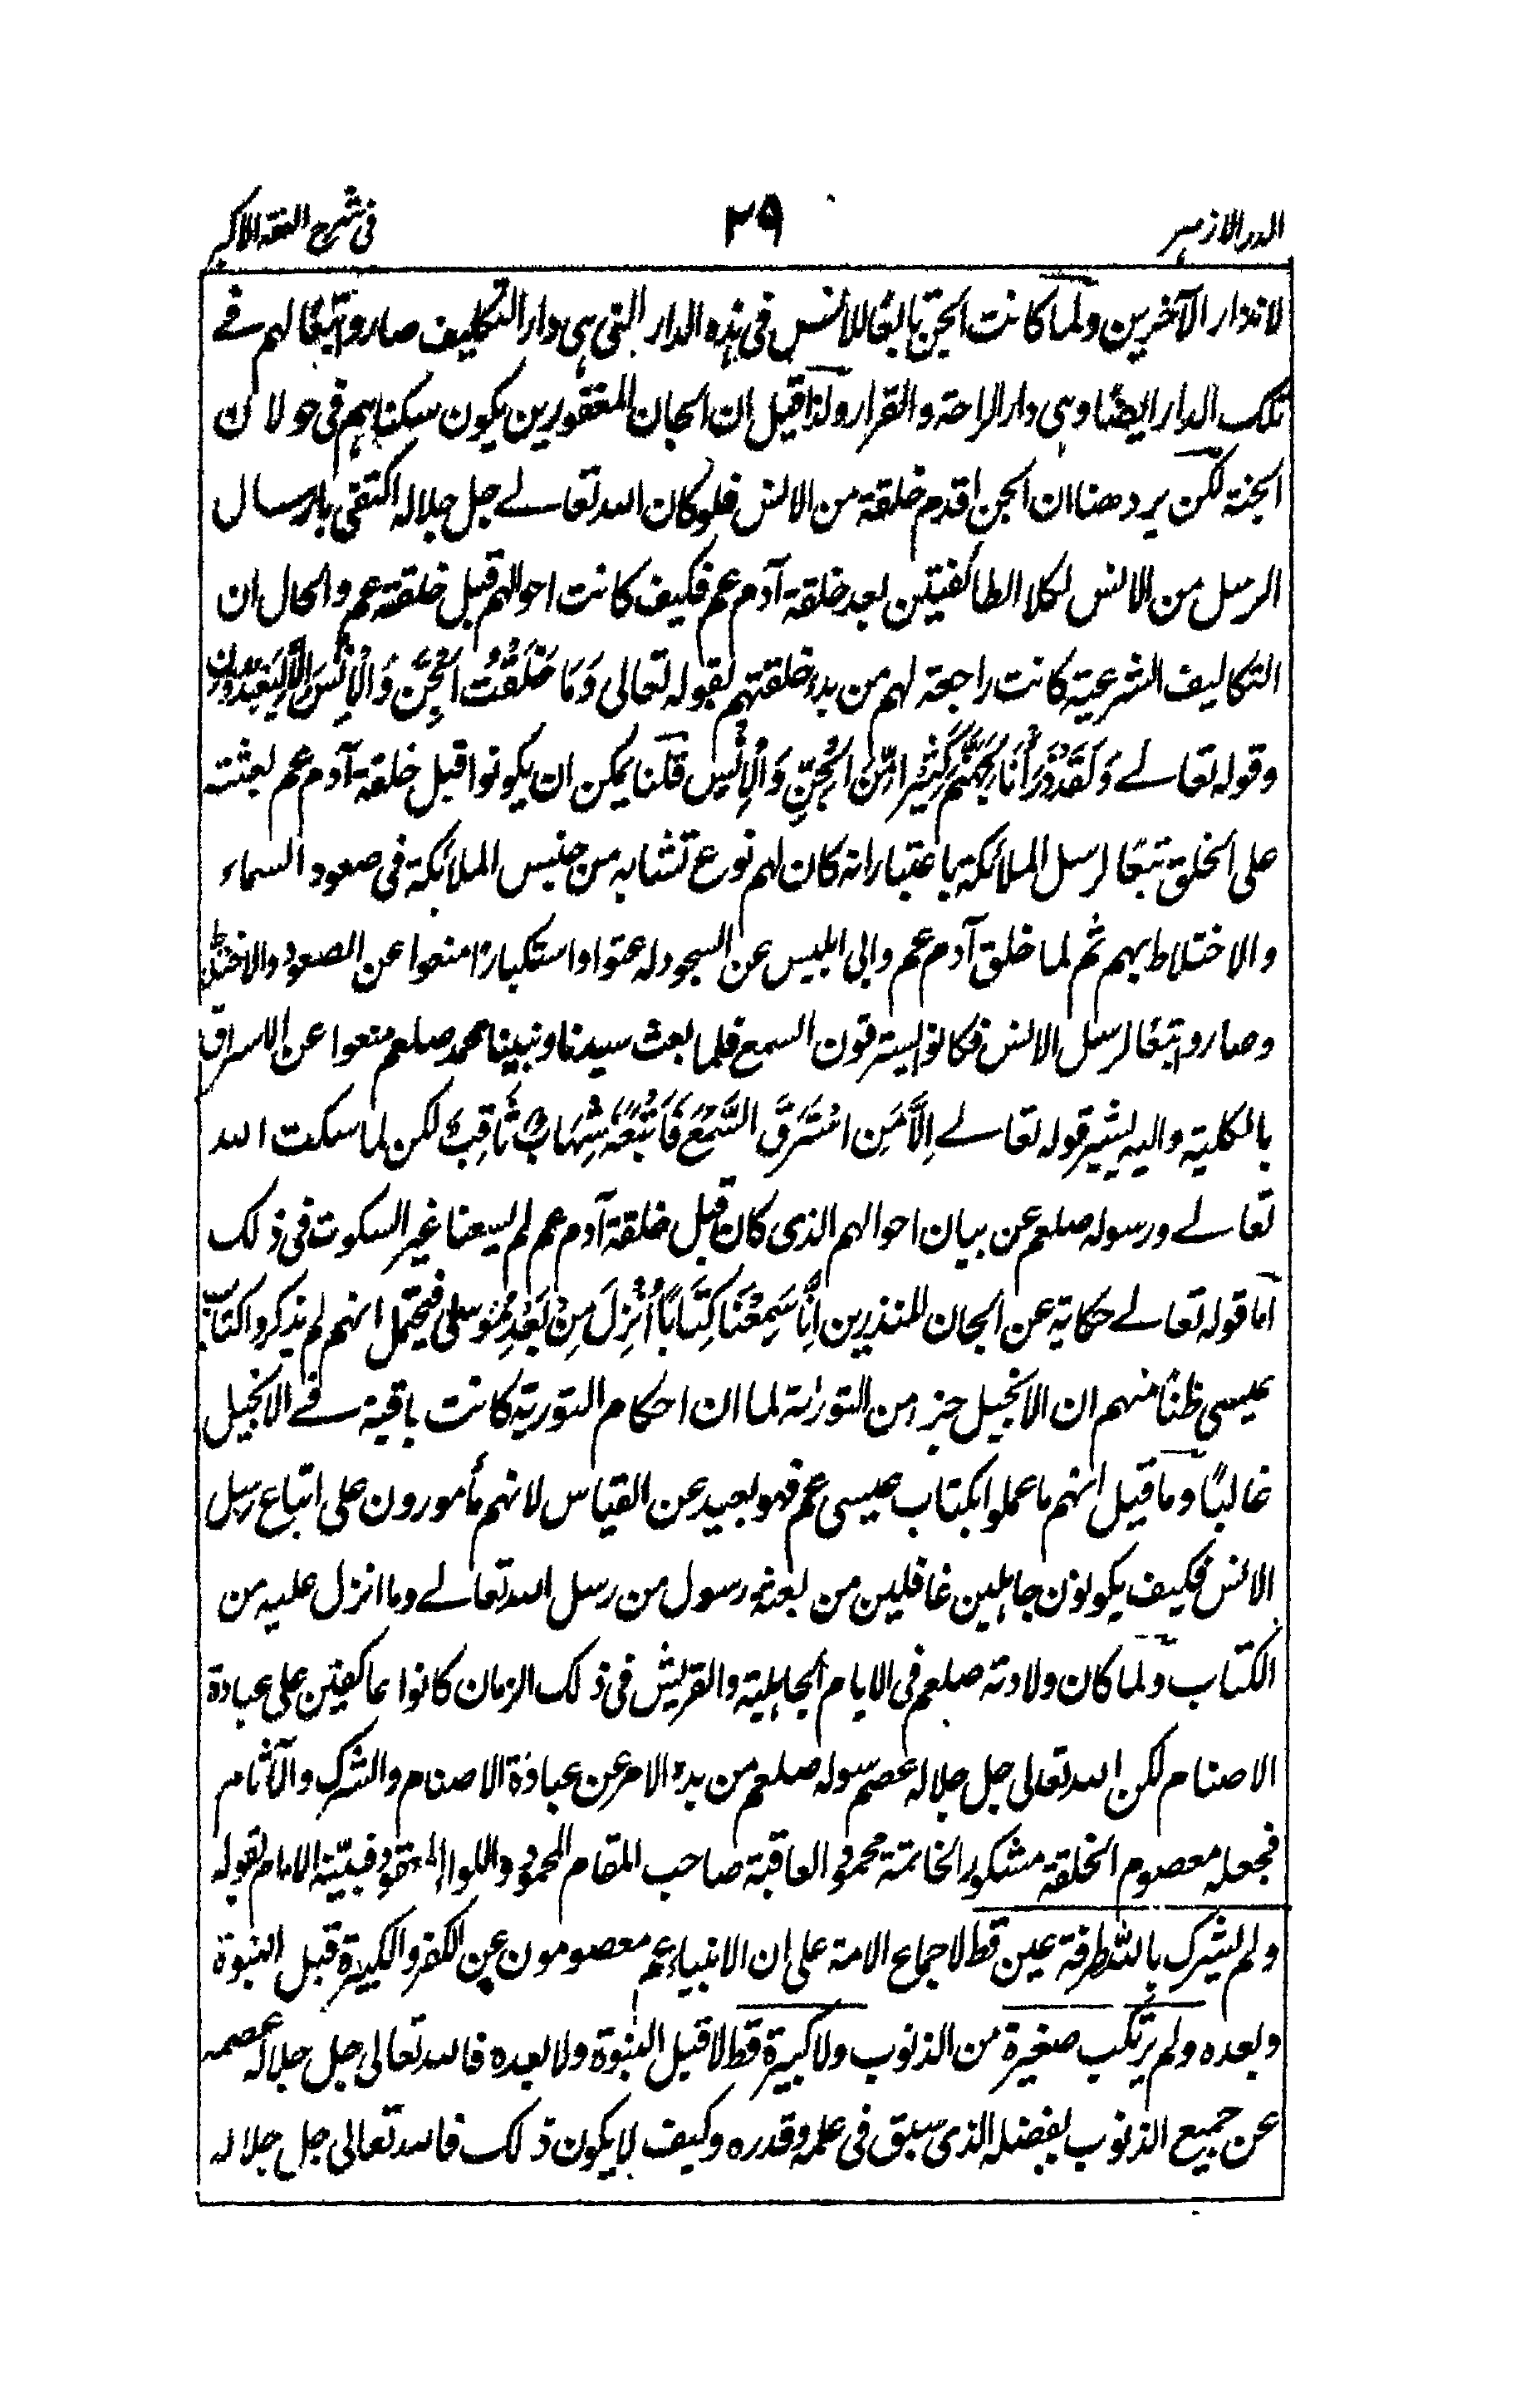 الدر الازهر
٢٩
فی شرح الفقه الاکبر
لانذار الآخرین ولما کانت الجن تابعًا للانس فی هذه الدار التی هی دار التکلیف صاروا تبعًا لهم فے
تلک الدار ایضًا وهی دار الراحة والقرار ولذا قیل ان الجان المغفورین یکون سکناهم فی حولان
الجنة لکن یرد هنا ان الجن اقدم خلقة من الانس فلو کان الله تعالے جل جلاله اکتفی بارسال
الرسل من الانس لکلا الطائفیتن بعد خلقة آدم عم فکیف کانت احوالهم قبل خلقة عم والحال ان
التکالیف الشرعیة کانت راجعة لهم من بدء خلقتهم لقوله تعالی وَمَا خَلَقْتُ الْجِنَّ وَالْاِنْسَ اِلَّا لِیَعْبُدُوْنِ
وقوله تعالے وَلَقَدْ ذَرَأْنَا لِجَهَنَّمَ کَثِیْرًا مِّنَ الْجِنِّ وَالْاِنْسِ قلنا یمکن ان یکونوا قبل خلقة آدم عم لعثته
علی الخلق تبعًا لرسل الملائکة باعتبار انه کان لهم نوع تشابه من جنس الملائکة فی صعود السماء
والاختلاط بهم ثم لما خلق آدم عم وابی ابلیس عن السجود له عتوا واستکبارًا منعوا عن الصعود والاختلاط
وصاروا تبعًا لرسل الانس فکانوا یسترقون السمع فلما بعث سیدنا ونبینا محمد صلعم منعوا عن الاسراق
بالکلیة والیه یشیر قوله تعالے اِلَّا مَنِ اسْتَرَقَ السَّمْعَ فَاَتْبَعَهٗ شِهَابٌ ثَاقِبٌ لکن لما سکت الله
تعالے ورسوله صلعم عن بیان احوالهم الذی کان قبل خلقة آدم عم لم یسعنا غیر السکوت فی ذلک
اما قوله تعالے حکایة عن الجان المنذرین اِنَّا سَمِعْنَا کِتَابًا اُنْزِلَ مِنْ بَعْدِ مُوْسٰی فیحتمل انهم لم یذکروا کتاب
عیسی ظنًا منهم ان الانجیل جزء من التوراة لما ان احکام التوریة کانت باقیة فے الانجیل
غالبًا وما قیل انهم ما عملوا بکتاب عیسی عم فهو بعید عن القیاس لانهم مأمورون علی اتباع رسل
الانس فکیف یکونون جاهلین غافلین من بعثة رسول من رسل الله تعالے وما انزل علیه من
الکتاب ولما کان ولادته صلعم فی الایام الجاهلیة والقریش فی ذلک الزمان کانوا عاکفین علی عبادة
الاصنام لکن الله تعالی جل جلاله عصم سوله صلعم من بدء الامر عن عبادة الاصنام والشرک والآثام
فجعله معصوم الخلقة مشکور الخاتمة محمود العاقبة صاحب المقام المحمود واللواء المعقود فبیّنه الامام لقوله
ولم یشرک بالله طرفة عین قط لاجماع الامة علی ان الانبیاء عم معصومون عن الکفر والکبیرة قبل النبوة
وبعده ولم یرتکب صغیرة من الذنوب ولا کبیرة قط لا قبل النبوة ولا بعده فالله تعالی جل جلاله عصمه
عن جمیع الذنوب بفضله الذی سبق فی علمه وقدره وکیف لا یکون ذلک فالله تعالی جل جلاله